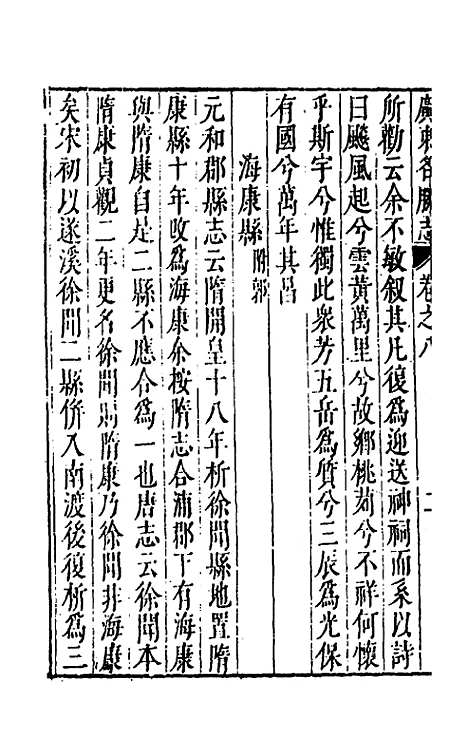 廣東名勝志 卷之八 二
所勸云余不敏叙其凡復爲迎送神祠而系以詩
曰颷風起兮雲黃萬里兮故鄉桃茢兮不祥何懷
乎斯宇兮惟獨此衆芳五岳爲質兮三辰爲光保
有國兮萬年其昌
海康縣 附郭
元和郡縣志云隋開皇十八年析徐聞縣地置隋
康縣十年改爲海康余按隋志合浦郡下有海康
與隋康自是二縣不應合爲一也唐志云徐聞本
隋康貞觀二年更名徐聞則隋康乃徐聞非海康
矣宋初以遂溪徐聞二縣併入南渡後復析爲三